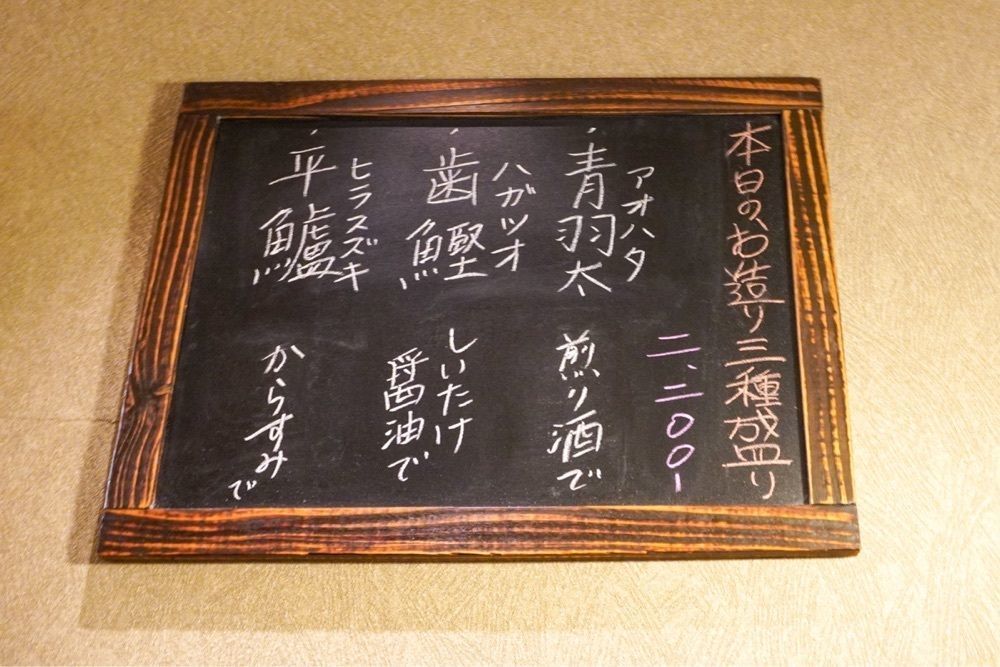 本日の、お造り三種盛り
二、二〇〇-
アオハタ
・青羽太 煎り酒で
ハガツオ
・歯鰹 しいたけ
醤油で
ヒラスズキ
・平鱸 からすみで